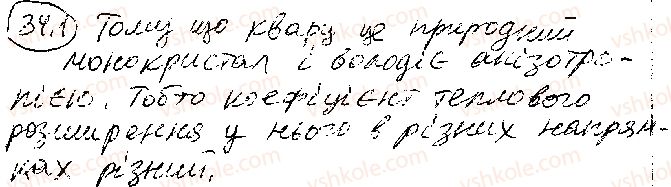 34.1 Тому що кварц це природний
монокристал і володіє анізотро-
пією. Тобто коефіцієнт теплового
розширення у нього в різних напрям-
ках різний.